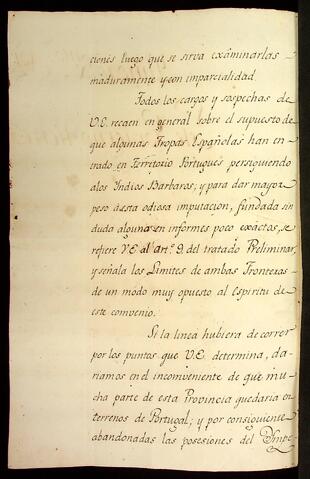 ciones luego que se sirva exâminarlas
maduramente y con imparcialidad.
Todos los cargos y sospechas de
V.E. recaen en general sobre el supuesto de
que algunas Tropas Españolas han en-
trado en Territorio Portugués persiguiendo
alos Indios Barbaros; y para dar mayor
peso áesta odiosa imputacion, fundada sin
duda alguna en informes poco exâctos, se
refiere V.E. al art.º 9. del tratado Preliminar,
y señala los Limites de ambas Fronteras
de un modo muy opuesto al Espiritu de
este convenio.
Si la linea hubiera de correr
por los puntos que V.E. determina, da-
riamos en el inconveniente de que mu-
cha parte de esta Provincia quedaria en
terrenos de Portugal; y por consiguiente
abandonadas las posesiones del Ympe-